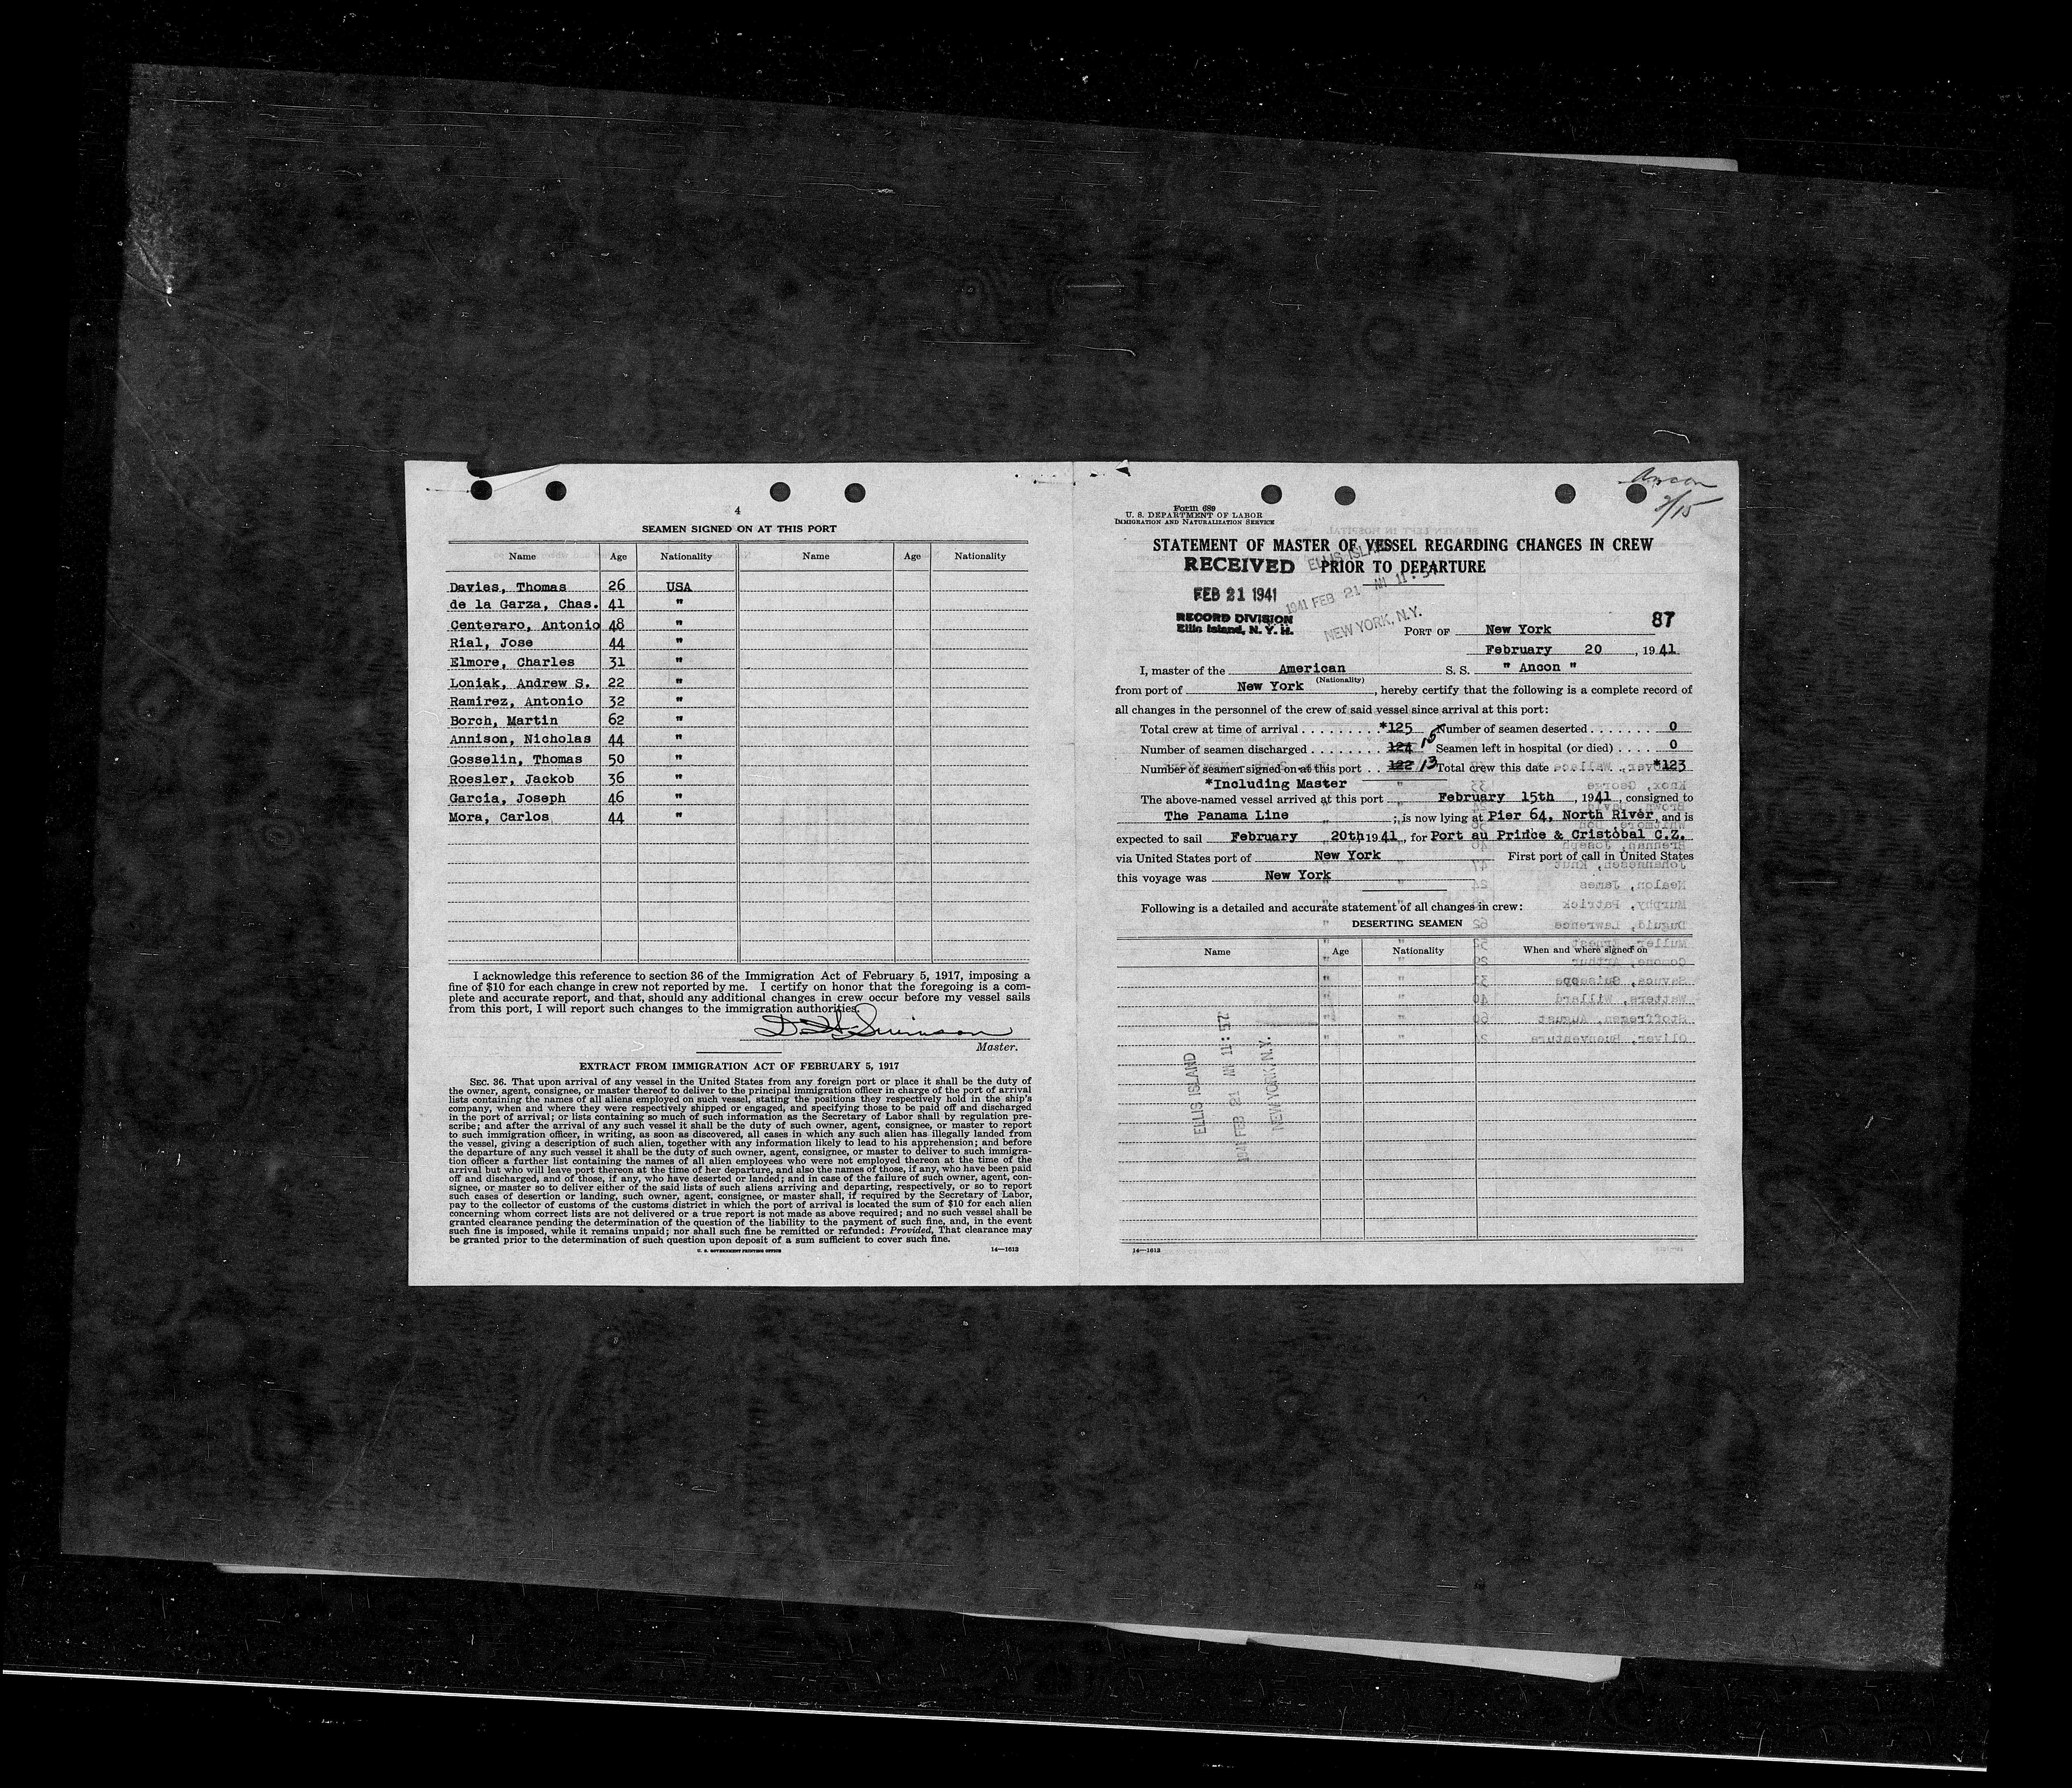 4
SEAMEN SIGNED ON AT THIS PORT
Name Age Nationality Name Age Nationality
Davies, Thomas 26 USA
de la Garza, Chas. 41 "
Centeraro, Antonio 48 "
Rial, Jose 44 "
Elmore, Charles 31 "
Loniak, Andrew S. 22 "
Ramirez, Antonio 32 "
Borch, Martin 62 "
Annison, Nicholas 44 "
Gosselin, Thomas 50 "
Roesler, Jackob 36 "
Garcia, Joseph 46 "
Mora, Carlos 44 "
I acknowledge this reference to section 36 of the Immigration Act of February 5, 1917, imposing a
fine of $10 for each change in crew not reported by me. I certify on honor that the foregoing is a com-
plete and accurate report, and that, should any additional changes in crew occur before my vessel sails
from this port, I will report such changes to the immigration authorities.
Master.
EXTRACT FROM IMMIGRATION ACT OF FEBRUARY 5, 1917
SEC. 36. That upon arrival of any vessel in the United States from any foreign port or place it shall be the duty of
the owner, agent, consignee, or master thereof to deliver to the principal immigration officer in charge of the port of arrival
lists containing the names of all aliens employed on such vessel, stating the positions they respectively hold in the ship's
company, when and where they were respectively shipped or engaged, and specifying those to be paid off and discharged
in the port of arrival; or lists containing so much of such information as the Secretary of Labor shall by regulation pre-
scribe; and after the arrival of any such vessel it shall be the duty of such owner, agent, consignee, or master to report
to such immigration officer, in writing, as soon as discovered, all cases in which any such alien has illegally landed from
the vessel, giving a description of such alien, together with any information likely to lead to his apprehension; and before
the departure of any such vessel it shall be the duty of such owner, agent, consignee, or master to deliver to such immigra-
tion officer a further list containing the names of all alien employees who were not employed thereon at the time of the
arrival but who will leave port thereon at the time of her departure, and also the names of those, if any, who have been paid
off and discharged, and of those, if any, who have deserted or landed; and in case of the failure of such owner, agent, con-
signee, or master so to deliver either of the said lists of such aliens arriving and departing, respectively, or so to report
such cases of desertion or landing, such owner, agent, consignee, or master shall, if required by the Secretary of Labor,
pay to the collector of customs of the customs district in which the port of arrival is located the sum of $10 for each alien
concerning whom correct lists are not delivered or a true report is not made as above required; and no such vessel shall be
granted clearance pending the determination of the question of the liability to the payment of such fine, and, in the event
such fine is imposed, while it remains unpaid; nor shall such fine be remitted or refunded: Provided, That clearance may
be granted prior to the determination of such question upon deposit of a sum sufficient to cover such fine.
U. S. GOVERNMENT PRINTING OFFICE 14—1612
Ancon
2/15
Form 689
U. S. DEPARTMENT OF LABOR
IMMIGRATION AND NATURALIZATION SERVICE
STATEMENT OF MASTER OF VESSEL REGARDING CHANGES IN CREW
PRIOR TO DEPARTURE
RECEIVED
FEB 21 1941
RECORD DIVISION
Ellis Island, N. Y. H.
ELLIS ISLAND
1941 FEB 21 AM 11:
NEW YORK, N.Y.
87
PORT OF New York
February 20, 1941
I, master of the American S. S. " Ancon "
(Nationality)
from port of New York, hereby certify that the following is a complete record of
all changes in the personnel of the crew of said vessel since arrival at this port:
Total crew at time of arrival . . . . . . . . . *125 Number of seamen deserted . . . . . . . 0
Number of seamen discharged . . . . . . . . 124 15 Seamen left in hospital (or died) . . . . 0
Number of seamen signed on at this port . . 122 13 Total crew this date *123
*Including Master
The above-named vessel arrived at this port February 15th, 1941, consigned to
The Panama Line; is now lying at Pier 64, North River, and is
expected to sail February 20th, 1941, for Port au Prince & Cristobal C.Z.
via United States port of New York First port of call in United States
this voyage was New York
Following is a detailed and accurate statement of all changes in crew:
DESERTING SEAMEN
Name Age Nationality When and where signed on
ELLIS ISLAND
1941 FEB 21 AM 11:57
NEW YORK, N.Y.
14—1612